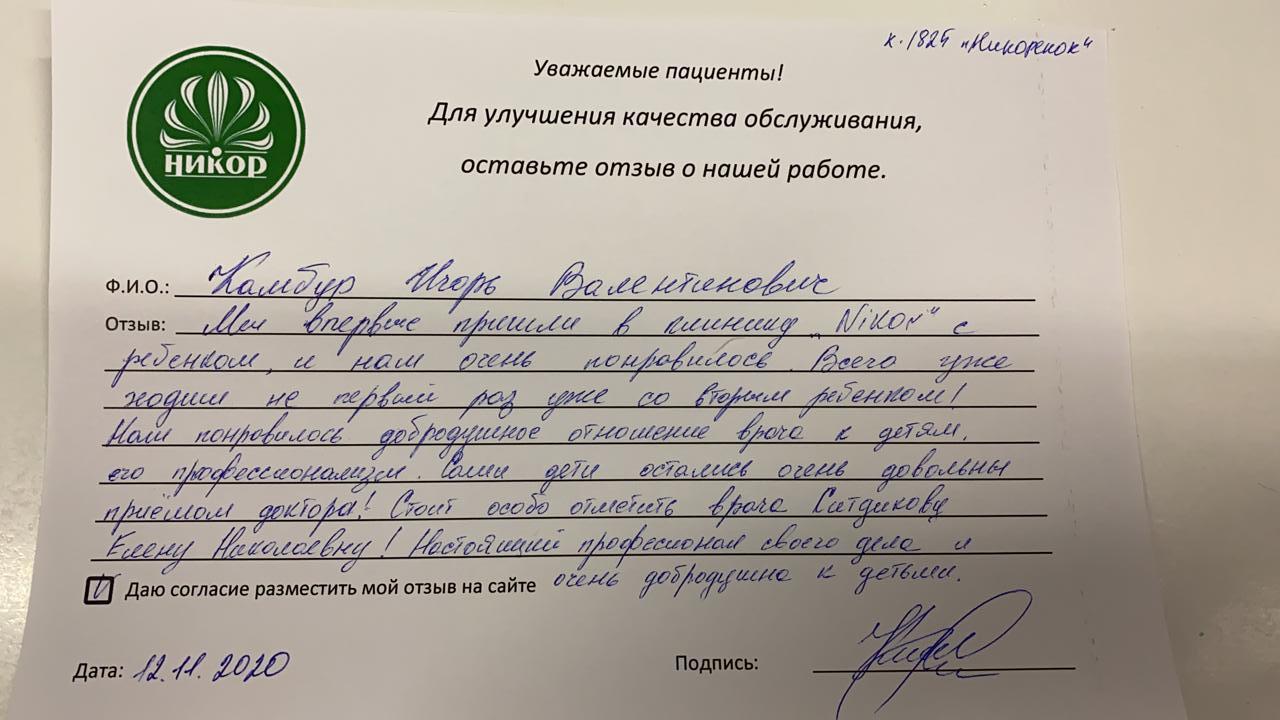 к. 1825 "Никоренок"
Уважаемые пациенты!
Для улучшения качества обслуживания,
оставьте отзыв о нашей работе.
НИКОР
Ф.И.О.: Камбур Игорь Валентинович
Отзыв: Мы впервые пришли в клинику "Nikor" с
ребенком, и нам очень понравилось. Всего уже
ходим не первый раз уже со вторым ребенком!
Нам понравилось добродушное отношение врача к детям,
его профессионализм. Сами дети остались очень довольны
приёмом доктора! Стоит особо отметить врача Ситдикову
Елену Николаевну! Настоящий професионал своего дела и
очень добродушна к детьми.
V Даю согласие разместить мой отзыв на сайте
Дата: 12.11.2020
Подпись: